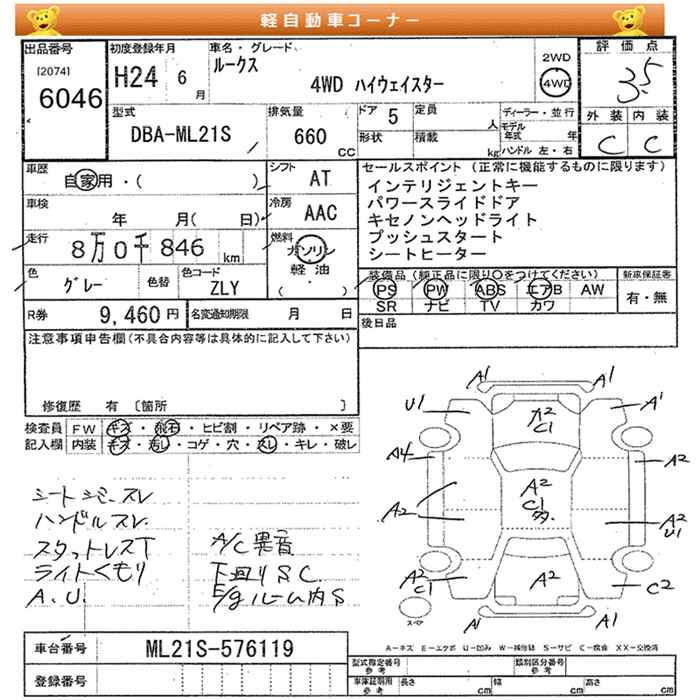 軽自動車コーナー
出品番号
[2074]
6046
初度登録年月
H24 6月
車名・グレード
ルークス
4WD ハイウェイスター
2WD
4WD
評価点
3.5
外装 内装
C C
型式
DBA-ML21S
排気量
660
CC
ドア 5
定員
人
形状
積載
kg
ディーラー・並行
モデル年式 年
ハンドル 左・右
車歴
自家用・( )
シフト
AT
車検
年 月( 日)
冷房
AAC
走行
8万0千846 km
燃料
ガソリン
軽油
( ・ )
色
グレー
色替
色コード
ZLY
セールスポイント (正常に機能するものに限ります)
インテリジェントキー
パワースライドドア
キセノンヘッドライト
プッシュスタート
シートヒーター
装備品(純正品に限り〇をつけてください)
PS PW ABS エアB AW
SR ナビ TV カワ
新車保証書
有・無
R券 9,460円
名変通知期限 月 日
後日品
注意事項申告欄(不具合内容等は具体的に記入して下さい)
修復歴 有 〔箇所 〕
検査員 FW キズ・飛石・ヒビ割・リペア跡・×要
記入欄 内装 キズ・汚し・コゲ・穴・スレ・キレ・破レ
シートシミ、スレ
ハンドルスレ
スタットレスT
ライトくもり
A.U.
A/C異音
下回りSC
E/gルーム内S
A1 A1
U1 A2 C1 A1
A4 A2
A2 C1 A2 U1
A2
A2 C1 A2 C2
スペア
A1 A1
A-キズ E-エクボ U-凹み W-補修跡 S-サビ C-腐食 XX-交換済
車台番号
ML21S-576119
登録番号
型式指定番号
参考
類別区分番号
参考
車庫証明用
参考
長さ cm
幅 cm
高さ cm